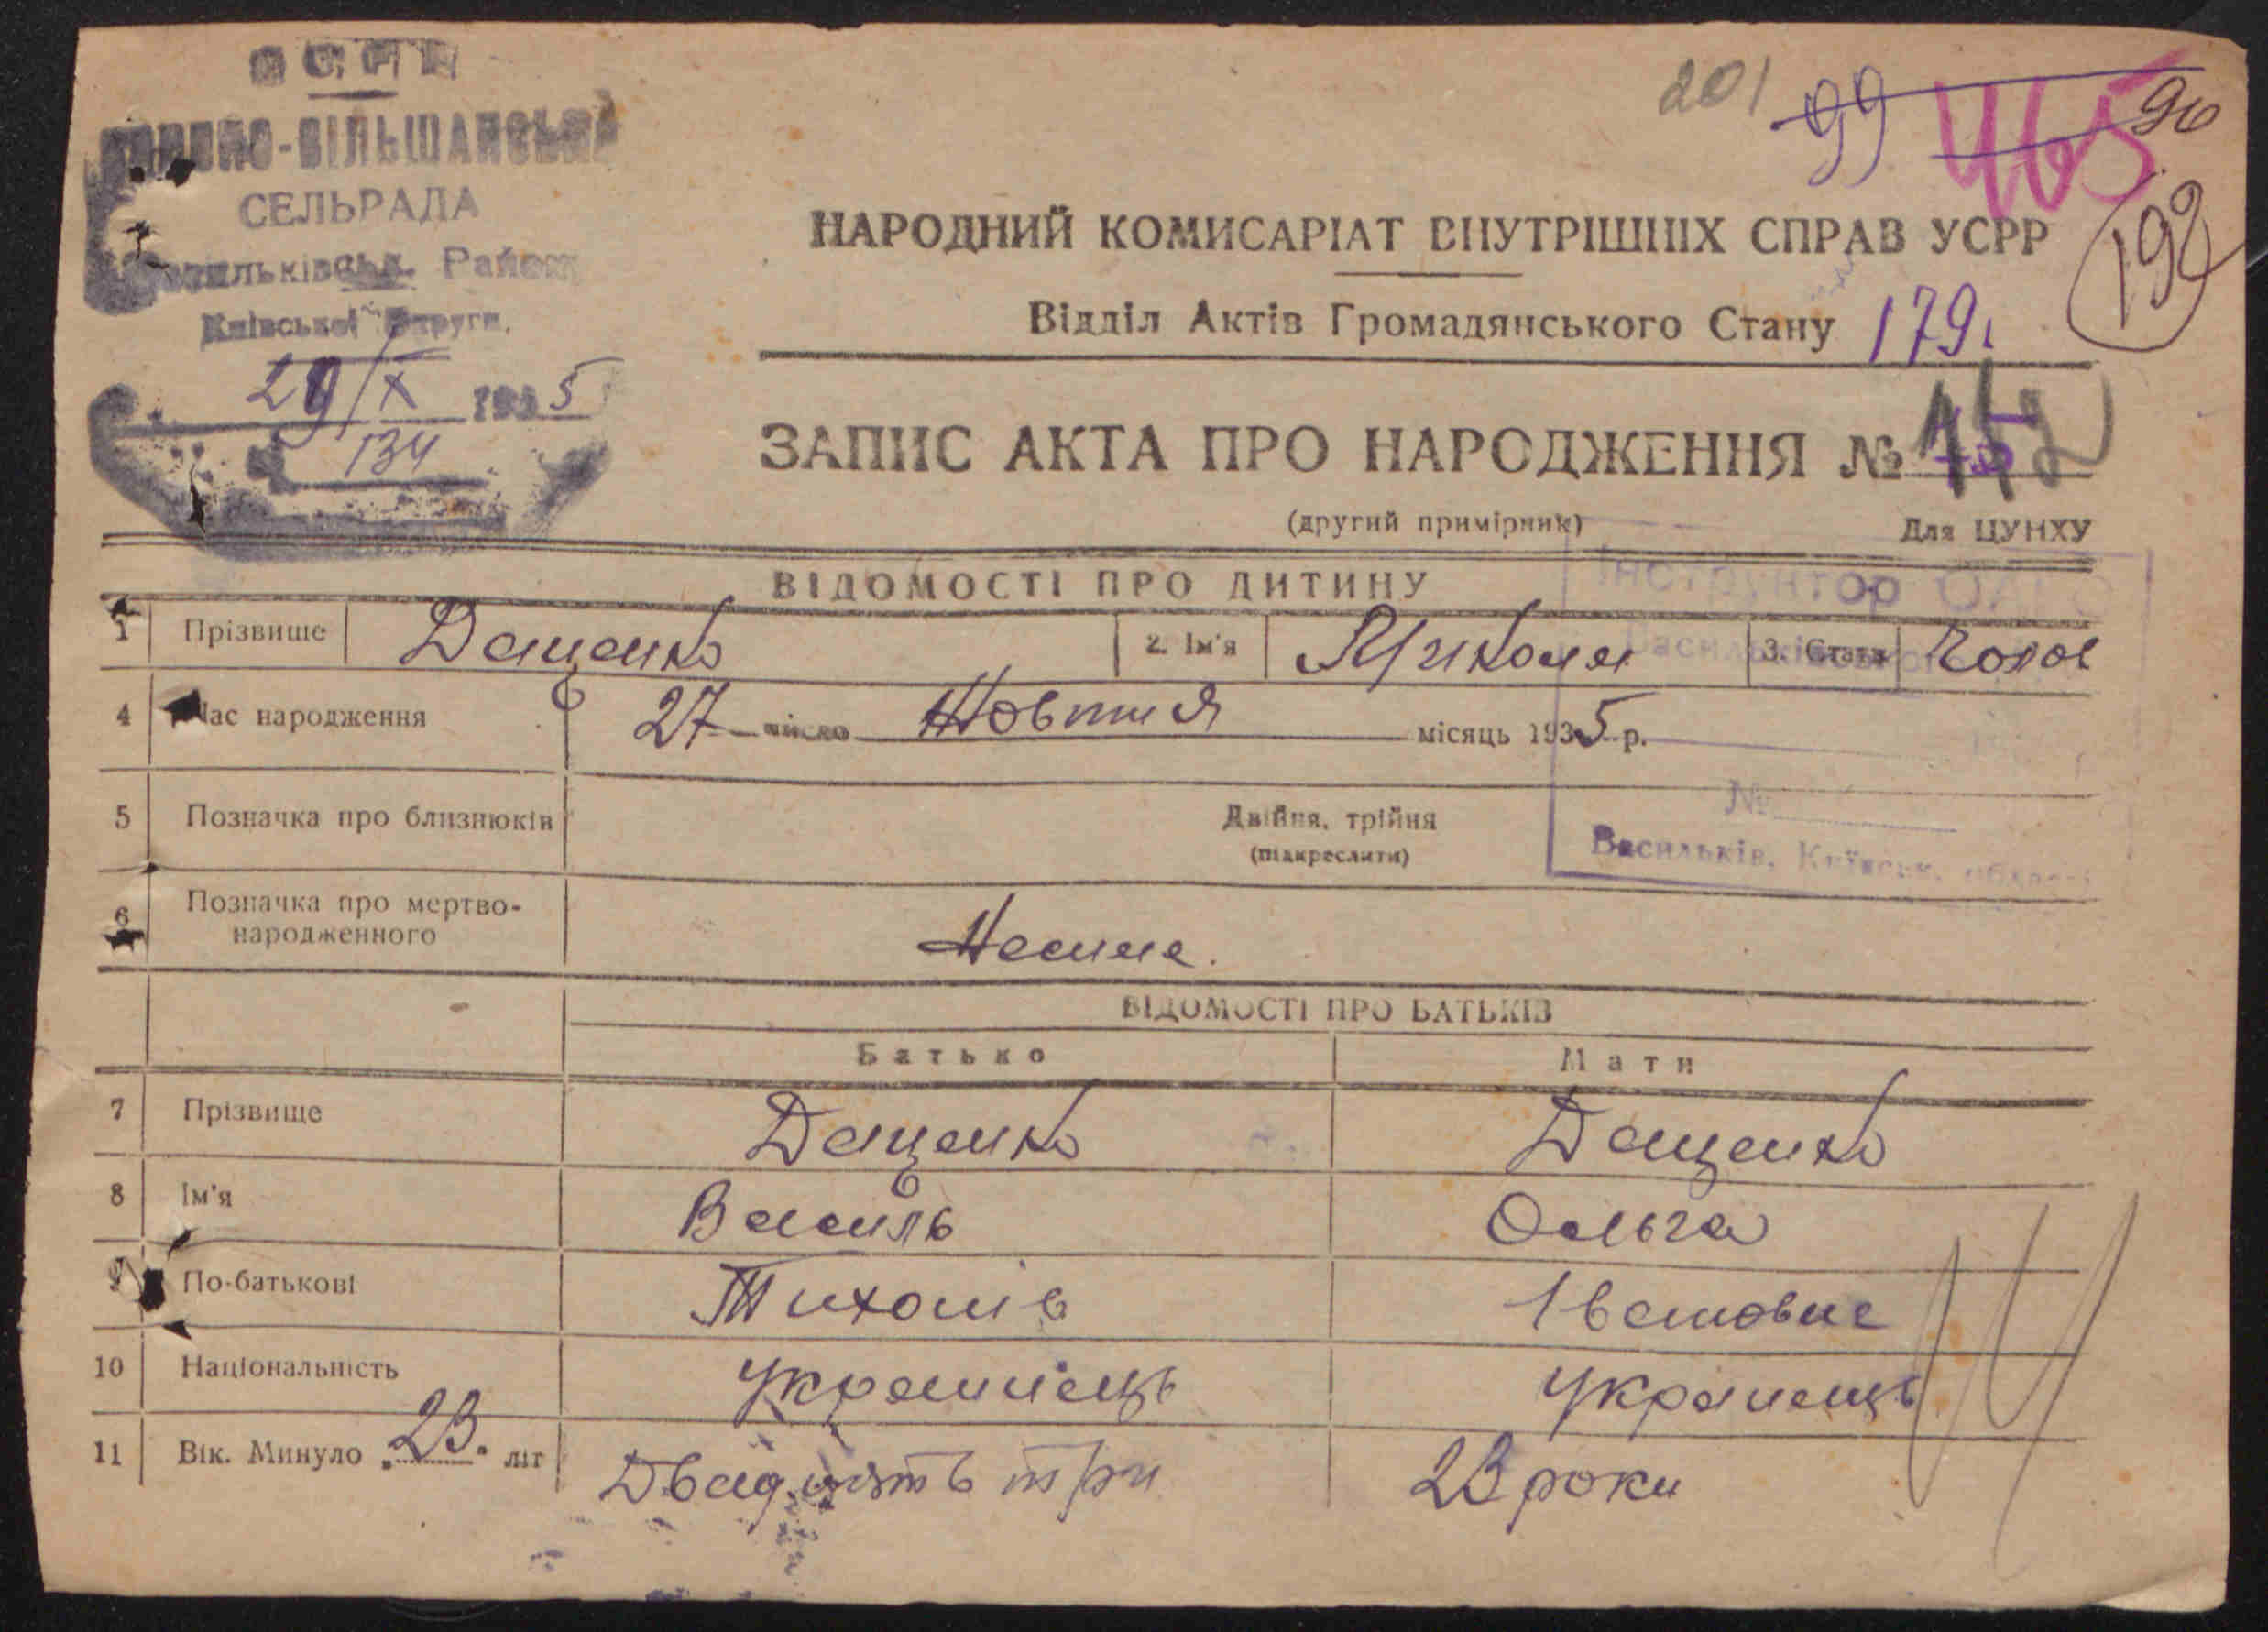 СЕЛЬРАДА
Район
Київської Округи.
29/X 1935
134
201 99 465 96
192
НАРОДНИЙ КОМИСАРІАТ ВНУТРІШНІХ СПРАВ УСРР
Відділ Актів Громадянського Стану 179.
ЗАПИС АКТА ПРО НАРОДЖЕННЯ №
(другий примірник) Для ЦУНХУ
Інструктор
ВІДОМОСТІ ПРО ДИТИНУ
1 Прізвище Даценко 2. Ім'я Микола 3. Стать Чолов
4 Час народження 27 число Жовтня місяць 1935 р.
5 Позначка про близнюків Двійня, трійня
(підкреслити)
№
Васильків, Київськ. області
6 Позначка про мертво-
народженного
Немає.
ВІДОМОСТІ ПРО БАТЬКІВ
Батько Мати
7 Прізвище Даценко Даценко
8 Ім'я Василь Ольга
9 По-батькові Тихонів Івановна
10 Національність Українець Українець
11 Вік. Минуло „23" літ Двадцять три 23 роки